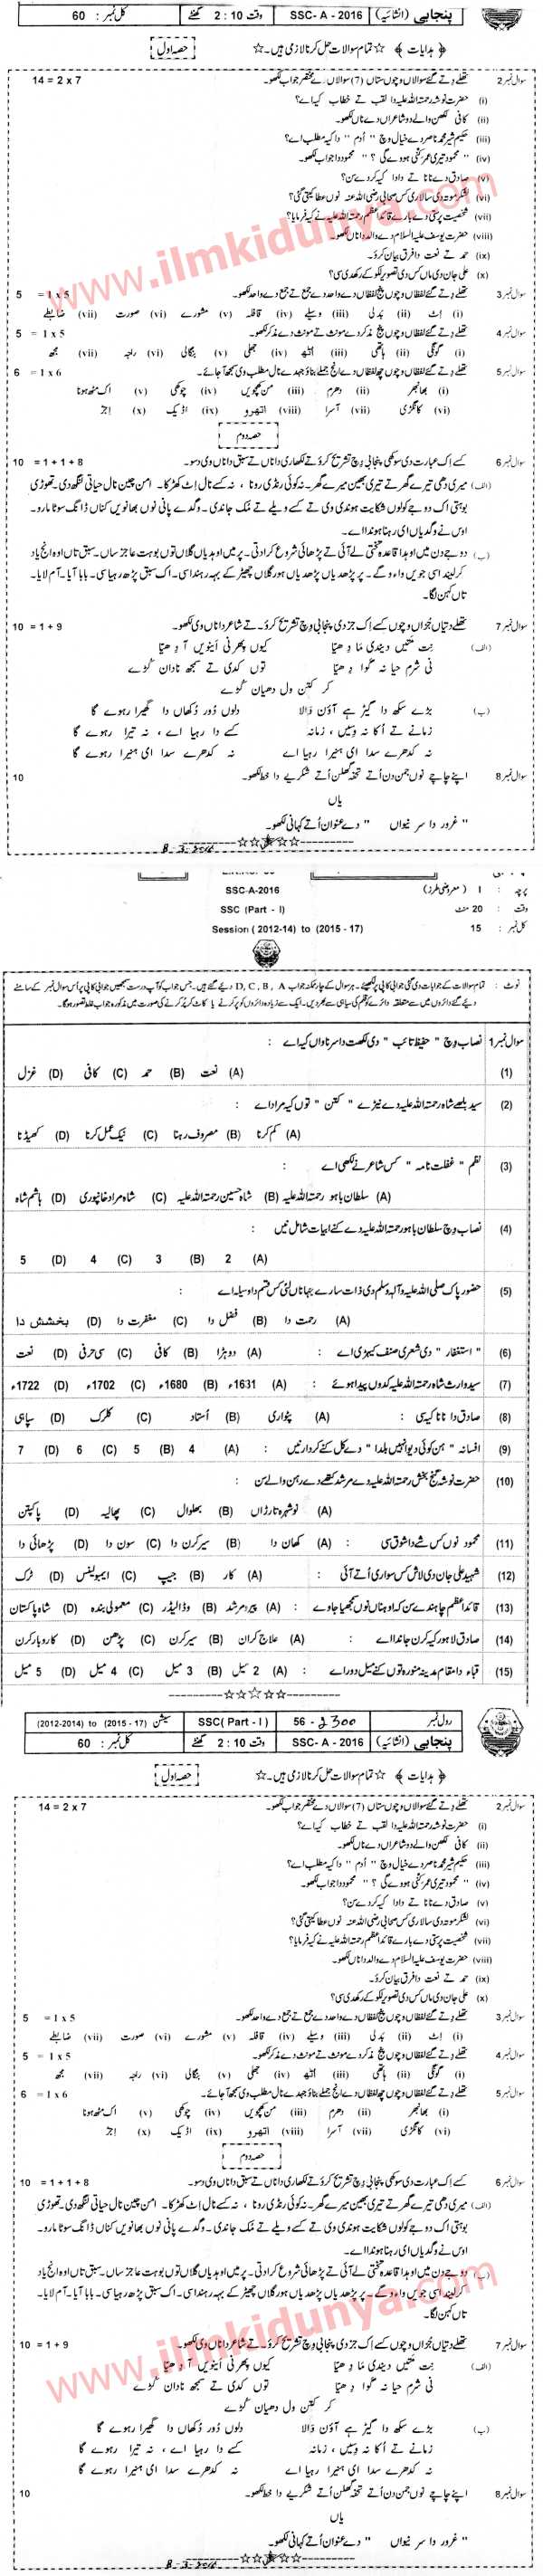 پنجابی (انشائیہ) SSC- A - 2016 وقت 2 : 10 گھنٹے کل نمبر : 60
﴿ ہدایات ﴾ ☆ تمام سوالات حل کرنا لازمی ہیں۔☆
حصہ اول
سوال نمبر 2 تھلے دتے گئے سوالاں وچوں ستاں (7) سوالاں دے مختصر جواب لکھو۔ 14 = 2 x 7
(i) حضرت نوشہ رحمتہ اللہ علیہ دا لقب تے خطاب کیہ اے؟
(ii) کافی لکھن والے دو شاعراں دے ناں لکھو۔
(iii) حکیم شیر محمد ناصر دے خیال وچ " اُدم " دا کیہ مطلب اے؟
(iv) " محمود تیری عمر کنی ہووے گی ؟ " محمود دا جواب لکھو۔
(v) صادق دے نانا تے دادا کیہ کردے سن؟
(vi) لشکر موتہ دی سالاری کس صحابی رضی اللہ عنہ نوں عطا کیتی گئی؟
(vii) شخصیت پرستی دے بارے قائد اعظم رحمتہ اللہ علیہ نے کیہ فرمایا؟
(viii) حضرت یوسف علیہ السلام دے والد دا ناں لکھو۔
(ix) حمد تے نعت دا فرق بیان کرو۔
(x) علی جان دی ماں کس دی تصویر لکو کے رکھدی سی؟
سوال نمبر 3 تھلے دتے گئے لفظاں وچوں پنج لفظاں دے واحد دے جمع تے جمع دے واحد لکھو۔ 5 = 1 x 5
(i) اِٹ (ii) بَدلی (iii) ویلے (iv) قافلہ (v) مشورے (vi) صورت (vii) ضابطے
سوال نمبر 4 تھلے دتے گئے لفظاں وچوں پنج مذکر دے مونث تے مونث دے مذکر لکھو۔ 5 = 1 x 5
(i) گونگی (ii) ہاتھی (iii) اٹھ (iv) جھلی (v) بنگالی (vi) راجہ (vii) مجھ
سوال نمبر 5 تھلے دتے گئے لفظاں وچوں چھ لفظاں دے انج جملے بناؤ جیہدے نال مطلب وی سمجھ آ جائے۔ 6 = 1 x 6
(i) بھانبھر (ii) دھرم (iii) من کھچویں (iv) چوکھی (v) اک مٹھ ہونا
(vi) کانگڑی (vii) آسرا (viii) اتھرو (ix) اڈیک (x) اجڑ
حصہ دوم
سوال نمبر 6 کسے اِک عبارت دی سوکھی پنجابی وچ تشریح کرو تے لکھاری دا ناں تے سبق دا ناں وی دسو۔ 10 = 1 + 1 + 8
(الف) میری دھی تیرے گھر تے تیری بھین میرے گھر۔ نہ کوئی رنڈی رونا ، نہ کسے نال اِٹ کھڑکا۔ امن چین نال حیاتی لنگھ دی۔ تھوڑی
بوہتی اک دوجے کولوں شکایت ہوندی وی تے کسے ویلے تے مُک جاندی۔ وگدے پانی نوں بھانویں کناں ڈانگ سوٹا مارو۔
اوس نے وگدیاں ای رہنا ہوندا اے۔
(ب) دوجے دن میں اوہدا قاعدہ تختی لے آئی تے پڑھائی شروع کرا دتی۔ پر میں اوہدیاں گلاں توں بوہت عاجز ساں۔ سبق تاں اوہ انج یاد
کر لیندا سی جویں واء وگے۔ پر پڑھدیاں پڑھدیاں ہور گلاں چھیڑ کے بہہ رہندا سی۔ اک سبق پڑھ رہیا سی۔ بابا آیا۔ آم لایا۔
تاں کہن لگا۔
سوال نمبر 7 تھلے دتیاں جُزاں وچوں کسے اِک جز دی پنجابی وچ تشریح کرو۔ تے شاعر دا ناں وی لکھو۔ 10 = 1 + 9
(الف) نِت متیں دیندی مَا دھیّا کیوں پھرنی اَینویں آ دھیّا
نی شرم حیا نہ گوا دھیّا توں کدی تے سمجھ نادان کُڑے
کر کتن ول دھیان کُڑے
(ب) بڑے سکھ دا گیڑ ہے آؤن والا دلوں دُور دُکھاں دا گھیرا رہوے گا
زمانے تے اُکا نہ وِسیں ، زمانہ کسے دا رہیا اے ، نہ تیرا رہوے گا
نہ کدھرے سدا ای ہنیرا رہیا اے نہ کدھرے سدا ای ہنیرا رہوے گا
سوال نمبر 8 اپنے چاچے نوں جمن دن اُتے تحفہ گھلن اُتے شکریے دا خط لکھو۔ 10
یاں
" غرور دا سر نیواں " دے عنوان اُتے کہانی لکھو۔
----------☆☆☆☆☆----------
8-3-2016
پرچہ : I (معروضی طرز) SSC-A-2016
وقت : 20 منٹ SSC (Part - I)
کل نمبر : 15 Session (2012-14) to (2015 - 17)
نوٹ : تمام سوالات کے جوابات دی گئی جوابی کاپی پر لکھیے۔ ہر سوال کے چار ممکنہ جواب D, C, B, A دیے گئے ہیں۔ جس جواب کو آپ درست سمجھیں جوابی کاپی پر اُس سوال نمبر کے سامنے
دیے گئے دائروں میں سے متعلقہ دائرے کو قلم کی سیاہی سے بھر دیں۔ ایک سے زیادہ دائروں کو پُر کرنے یا کاٹ کر پُر کرنے کی صورت میں مذکورہ جواب غلط تصور ہوگا۔
سوال نمبر 1 نصاب وچ " حفیظ تائب " دی لکھت دا سرناواں کیہ اے :
(1) (A) نعت (B) حمد (C) کافی (D) غزل
(2) سید بلھے شاہ رحمتہ اللہ علیہ دے نیڑے " کتن " توں کیہ مراد اے :
(A) کم کرنا (B) مصروف رہنا (C) نیک عمل کرنا (D) کھیڈنا
(3) نظم " غفلت نامہ " کس شاعر نے لکھی اے :
(A) سلطان باہو رحمتہ اللہ علیہ (B) شاہ حسین رحمتہ اللہ علیہ (C) شاہ مراد خانپوری (D) ہاشم شاہ
(4) نصاب وچ سلطان باہو رحمتہ اللہ علیہ دے کنے ابیات شامل نیں :
(A) 2 (B) 3 (C) 4 (D) 5
(5) حضور پاک صلی اللہ علیہ و آلہ وسلم دی ذات سارے جہاناں لئی کس قسم دا وسیلہ اے :
(A) رحمت دا (B) فضل دا (C) مغفرت دا (D) بخشش دا
(6) " استغفار " دی شعری صنف کیہڑی اے : (A) دوہڑا (B) کافی (C) سی حرفی (D) نعت
(7) سید وارث شاہ رحمتہ اللہ علیہ کدوں پیدا ہوئے : (A) 1631ء (B) 1680ء (C) 1702ء (D) 1722ء
(8) صادق دا نانا کیہ سی : (A) پٹواری (B) اُستاد (C) کلرک (D) سپاہی
(9) افسانہ " ہن کوئی دیوا نہیں بلدا " دے کل کنے کردار نیں : (A) 4 (B) 5 (C) 6 (D) 7
(10) حضرت نوشہ گنج بخش رحمتہ اللہ علیہ دے مرشد کتھے دے رہن والے سن :
(A) نوشہرہ تارڑاں (B) بھلوال (C) پھالیہ (D) پاکپتن
(11) محمود نوں کس شے دا شوق سی : (A) کھان دا (B) سیر کرن دا (C) سون دا (D) پڑھائی دا
(12) شہید علی جان دی لاش کس سواری اُتے آئی : (A) کار (B) جیپ (C) ایمبولینس (D) ٹرک
(13) قائد اعظم چاہندے سن کہ اوہناں نوں سمجھیا جاوے : (A) پیر و مرشد (B) وڈا لیڈر (C) معمولی بندہ (D) شاہ پاکستان
(14) صادق لاہور کیہ کرن جاندا اے : (A) علاج کران (B) سیر کرن (C) پڑھن (D) کاروبار کرن
(15) قباء دا مقام مدینہ منورہ توں کنے میل دور اے : (A) 2 میل (B) 3 میل (C) 4 میل (D) 5 میل
----------☆☆☆☆----------
رول نمبر 56 - 2300 SSC( Part - I ) سیشن (2015 - 17) to (2012-2014)
پنجابی (انشائیہ) SSC- A - 2016 وقت 2 : 10 گھنٹے کل نمبر : 60
﴿ ہدایات ﴾ ☆ تمام سوالات حل کرنا لازمی ہیں۔☆
حصہ اول
سوال نمبر 2 تھلے دتے گئے سوالاں وچوں ستاں (7) سوالاں دے مختصر جواب لکھو۔ 14 = 2 x 7
(i) حضرت نوشہ رحمتہ اللہ علیہ دا لقب تے خطاب کیہ اے؟
(ii) کافی لکھن والے دو شاعراں دے ناں لکھو۔
(iii) حکیم شیر محمد ناصر دے خیال وچ " اُدم " دا کیہ مطلب اے؟
(iv) " محمود تیری عمر کنی ہووے گی ؟ " محمود دا جواب لکھو۔
(v) صادق دے نانا تے دادا کیہ کردے سن؟
(vi) لشکر موتہ دی سالاری کس صحابی رضی اللہ عنہ نوں عطا کیتی گئی؟
(vii) شخصیت پرستی دے بارے قائد اعظم رحمتہ اللہ علیہ نے کیہ فرمایا؟
(viii) حضرت یوسف علیہ السلام دے والد دا ناں لکھو۔
(ix) حمد تے نعت دا فرق بیان کرو۔
(x) علی جان دی ماں کس دی تصویر لکو کے رکھدی سی؟
سوال نمبر 3 تھلے دتے گئے لفظاں وچوں پنج لفظاں دے واحد دے جمع تے جمع دے واحد لکھو۔ 5 = 1 x 5
(i) اِٹ (ii) بَدلی (iii) ویلے (iv) قافلہ (v) مشورے (vi) صورت (vii) ضابطے
سوال نمبر 4 تھلے دتے گئے لفظاں وچوں پنج مذکر دے مونث تے مونث دے مذکر لکھو۔ 5 = 1 x 5
(i) گونگی (ii) ہاتھی (iii) اٹھ (iv) جھلی (v) بنگالی (vi) راجہ (vii) مجھ
سوال نمبر 5 تھلے دتے گئے لفظاں وچوں چھ لفظاں دے انج جملے بناؤ جیہدے نال مطلب وی سمجھ آ جائے۔ 6 = 1 x 6
(i) بھانبھر (ii) دھرم (iii) من کھچویں (iv) چوکھی (v) اک مٹھ ہونا
(vi) کانگڑی (vii) آسرا (viii) اتھرو (ix) اڈیک (x) اجڑ
حصہ دوم
سوال نمبر 6 کسے اِک عبارت دی سوکھی پنجابی وچ تشریح کرو تے لکھاری دا ناں تے سبق دا ناں وی دسو۔ 10 = 1 + 1 + 8
(الف) میری دھی تیرے گھر تے تیری بھین میرے گھر۔ نہ کوئی رنڈی رونا ، نہ کسے نال اِٹ کھڑکا۔ امن چین نال حیاتی لنگھ دی۔ تھوڑی
بوہتی اک دوجے کولوں شکایت ہوندی وی تے کسے ویلے تے مُک جاندی۔ وگدے پانی نوں بھانویں کناں ڈانگ سوٹا مارو۔
اوس نے وگدیاں ای رہنا ہوندا اے۔
(ب) دوجے دن میں اوہدا قاعدہ تختی لے آئی تے پڑھائی شروع کرا دتی۔ پر میں اوہدیاں گلاں توں بوہت عاجز ساں۔ سبق تاں اوہ انج یاد
کر لیندا سی جویں واء وگے۔ پر پڑھدیاں پڑھدیاں ہور گلاں چھیڑ کے بہہ رہندا سی۔ اک سبق پڑھ رہیا سی۔ بابا آیا۔ آم لایا۔
تاں کہن لگا۔
سوال نمبر 7 تھلے دتیاں جُزاں وچوں کسے اِک جز دی پنجابی وچ تشریح کرو۔ تے شاعر دا ناں وی لکھو۔ 10 = 1 + 9
(الف) نِت متیں دیندی مَا دھیّا کیوں پھرنی اَینویں آ دھیّا
نی شرم حیا نہ گوا دھیّا توں کدی تے سمجھ نادان کُڑے
کر کتن ول دھیان کُڑے
(ب) بڑے سکھ دا گیڑ ہے آؤن والا دلوں دُور دُکھاں دا گھیرا رہوے گا
زمانے تے اُکا نہ وِسیں ، زمانہ کسے دا رہیا اے ، نہ تیرا رہوے گا
نہ کدھرے سدا ای ہنیرا رہیا اے نہ کدھرے سدا ای ہنیرا رہوے گا
سوال نمبر 8 اپنے چاچے نوں جمن دن اُتے تحفہ گھلن اُتے شکریے دا خط لکھو۔ 10
یاں
" غرور دا سر نیواں " دے عنوان اُتے کہانی لکھو۔
----------☆☆☆☆☆----------
8-3-2016
www.ilmkidunya.com
www.ilmkidunya.com